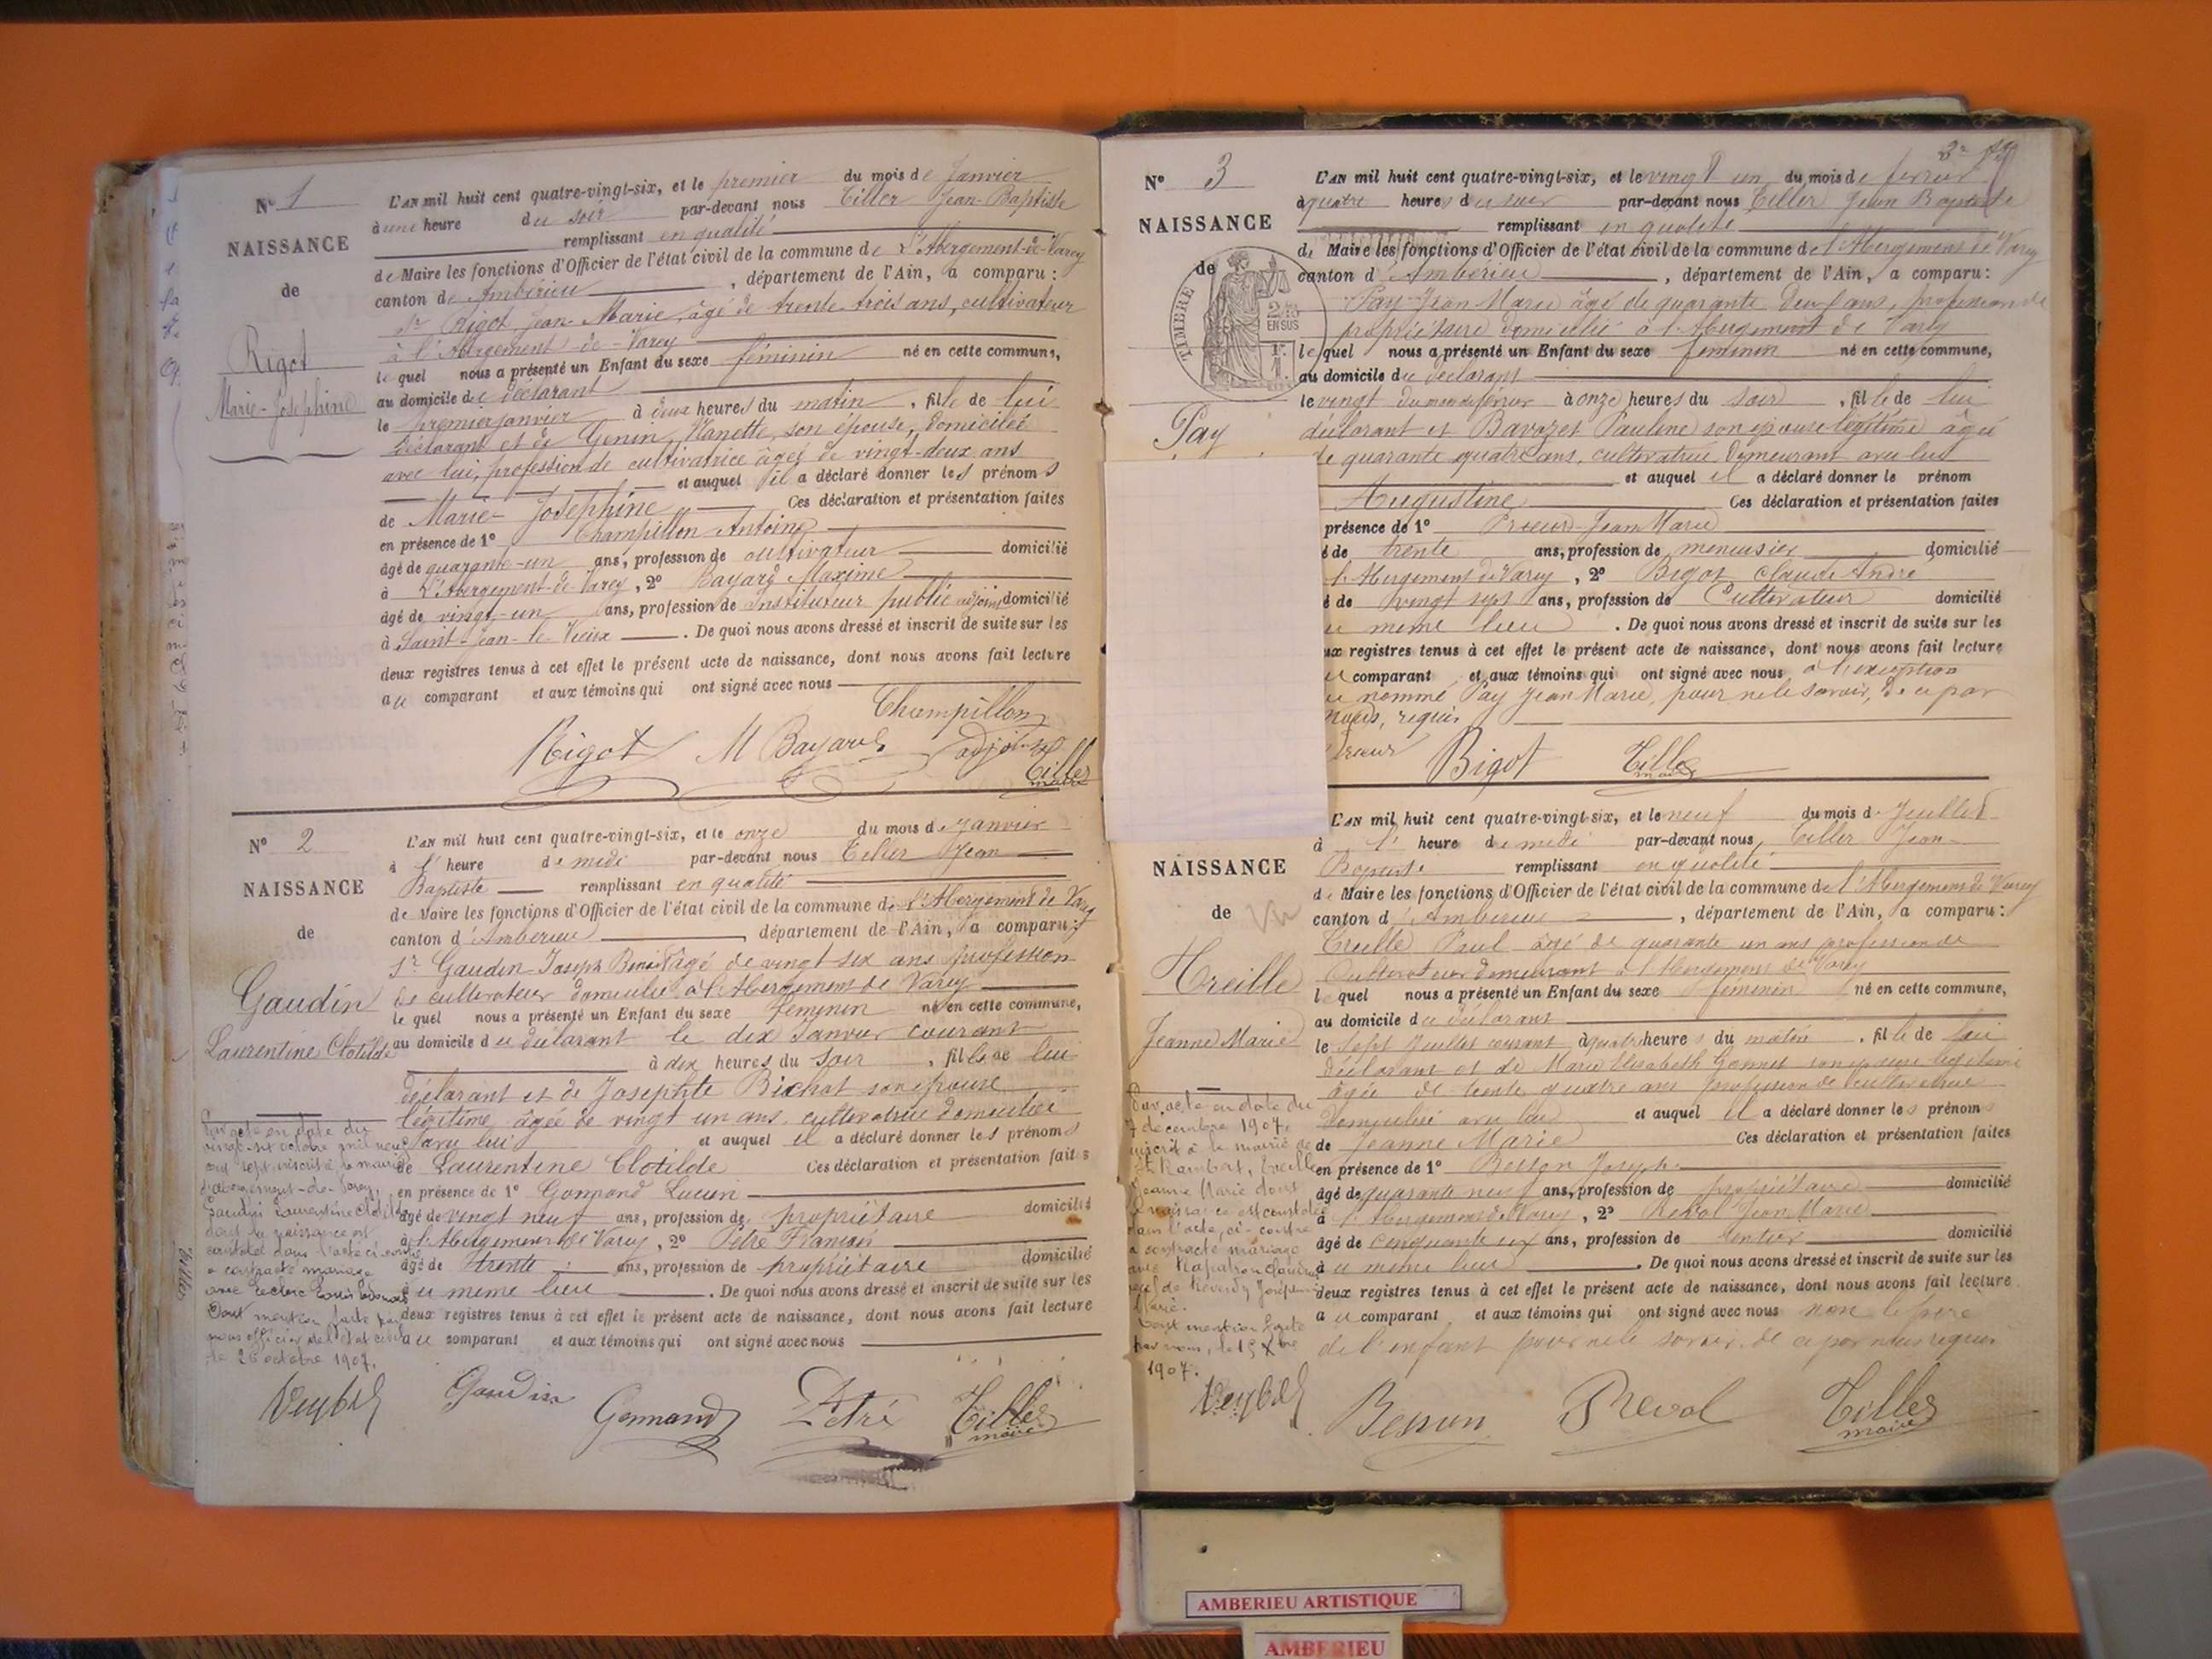 N° 1
NAISSANCE
de
Rigot
Marie-Joséphine
L'AN mil huit cent quatre-vingt-six, et le premier du mois de Janvier
à une heure du soir par-devant nous Tiller Jean-Baptiste
remplissant en qualité
de Maire les fonctions d'Officier de l'état civil de la commune de L'Abergement-de-Varey
canton de Ambérieu, département de l'Ain, a comparu :
Sr Rigot Jean-Marie, âgé de trente trois ans, cultivateur
à l'Abergement-de-Varey
lequel nous a présenté un Enfant du sexe féminin né en cette commune,
au domicile du déclarant
le premier janvier à deux heures du matin, fille de lui
déclarant et de Genin, Nanette, son épouse, domiciliée
avec lui, profession de cultivatrice âgée de vingt-deux ans
et auquel il a déclaré donner les prénoms
de Marie-Joséphine Ces déclaration et présentation faites
en présence de 1° Champillon Antoine
âgé de quarante-un ans, profession de cultivateur domicilié
à L'Abergement-de-Varey, 2° Bayard Maxime
âgé de vingt-un ans, profession de Instituteur public adjoint domicilié
à Saint-Jean-le-Vieux. De quoi nous avons dressé et inscrit de suite sur les
deux registres tenus à cet effet le présent acte de naissance, dont nous avons fait lecture
au comparant et aux témoins qui ont signé avec nous
Champillon
Rigot M Bayard adjoint Tiller
maire
N° 2
NAISSANCE
de
Gaudin
Laurentine Clotilde
L'AN mil huit cent quatre-vingt-six, et le onze du mois de Janvier
à l' heure de midi par-devant nous Tiller Jean
Baptiste remplissant en qualité
de Maire les fonctions d'Officier de l'état civil de la commune de l'Abergement de Varey
canton d'Ambérieu, département de l'Ain, a comparu :
Sr Gaudin Joseph Benoit âgé de vingt six ans profession
de cultivateur domicilié à l'Abergement de Varey
lequel nous a présenté un Enfant du sexe feminin né en cette commune,
au domicile du déclarant le dix Janvier courant
à dix heures du soir, fille de lui
déclarant et de Josephte Bichat son épouse
légitime âgée de vingt un ans cultivatrice domiciliée
avec lui et auquel il a déclaré donner les prénoms
de Laurentine Clotilde Ces déclaration et présentation faites
en présence de 1° Gormand Lucien
âgé de vingt neuf ans, profession de propriétaire domicilié
à l'Abergement de Varey, 2° Pétré François
âgé de trente ans, profession de propriétaire domicilié
au meme lieu. De quoi nous avons dressé et inscrit de suite sur les
deux registres tenus à cet effet le présent acte de naissance, dont nous avons fait lecture
au comparant et aux témoins qui ont signé avec nous
Par acte en date du
vingt-six octobre mil neuf
cent sept, inscrit à la mairie
d'abergement-de-Varey,
Gaudin Laurentine Clotilde
dont la naissance est
constatée dans l'acte ci-contre
a contracté mariage
avec Leclerc Louis
Dont mention faite par
nous officier de l'état civil
le 26 octobre 1907.
Gaudin Gormand Pétré Tiller
maire
N° 3
NAISSANCE
de
TIMBRE
2/10
EN SUS
Pay
L'AN mil huit cent quatre-vingt-six, et le vingt un du mois de fevrier
à quatre heures du soir par-devant nous Tiller Jean Baptiste
remplissant en qualité
de Maire les fonctions d'Officier de l'état civil de la commune de l'Abergement de Varey
canton d'Ambérieu, département de l'Ain, a comparu :
Pay Jean Marie âgé de quarante deux ans, profession de
propriétaire domicilié à l'Abergement de Varey
lequel nous a présenté un Enfant du sexe feminin né en cette commune,
au domicile du déclarant
le vingt du mois de février à onze heures du soir, fille de lui
déclarant et Bavozet Pauline son épouse légitime âgée
de quarante quatre ans, cultivatrice demeurant avec lui
et auquel il a déclaré donner le prénom
Augustine Ces déclaration et présentation faites
présence de 1° Prieur Jean Marie
é de trente ans, profession de menuisier domicilié
l'Abergement de Varey, 2° Bigot Claude André
é de vingt sept ans, profession de Cultivateur domicilié
au meme lieu. De quoi nous avons dressé et inscrit de suite sur les
ux registres tenus à cet effet le présent acte de naissance, dont nous avons fait lecture
comparant et aux témoins qui ont signé avec nous à l'exception
du nommé Pay Jean Marie, pour ne le savoir, de ce par
nous, requis
Prieur Bigot Tiller
maire
NAISSANCE
de
Treille
Jeanne Marie
L'AN mil huit cent quatre-vingt-six, et le neuf du mois de Juillet
à l' heure de midi par-devant nous Tiller Jean
Baptiste remplissant en qualité
de Maire les fonctions d'Officier de l'état civil de la commune de l'Abergement de Varey
canton d'Ambérieu, département de l'Ain, a comparu :
Treille Paul âgé de quarante un ans profession de
Cultivateur demeurant à l'Abergement de Varey
lequel nous a présenté un Enfant du sexe feminin né en cette commune,
au domicile du déclarant
le sept Juillet courant à quatre heures du matin, fille de lui
déclarant et de Marie Elisabeth Gonnet son épouse légitime
âgée de trente quatre ans profession de cultivatrice
domiciliée avec lui et auquel il a déclaré donner les prénoms
de Jeanne Marie Ces déclaration et présentation faites
en présence de 1° Besson Joseph
âgé de quarante neuf ans, profession de propriétaire domicilié
à l'Abergement de Varey, 2° Reval Jean Marie
âgé de cinquante six ans, profession de rentier domicilié
au meme lieu. De quoi nous avons dressé et inscrit de suite sur les
deux registres tenus à cet effet le présent acte de naissance, dont nous avons fait lecture
au comparant et aux témoins qui ont signé avec nous non le père
de l'enfant pour ne le savoir de ce par nous requis
Par acte en date du
7 décembre 1907,
inscrit à la mairie de
St Rambert, Treille
Jeanne Marie dont
la naissance est constatée
dans l'acte ci-contre
a contracté mariage
avec
Dont mention faite
par nous, le 15 Xbre
1907.
Besson Reval Tiller
maire
AMBERIEU ARTISTIQUE
AMBERIEU